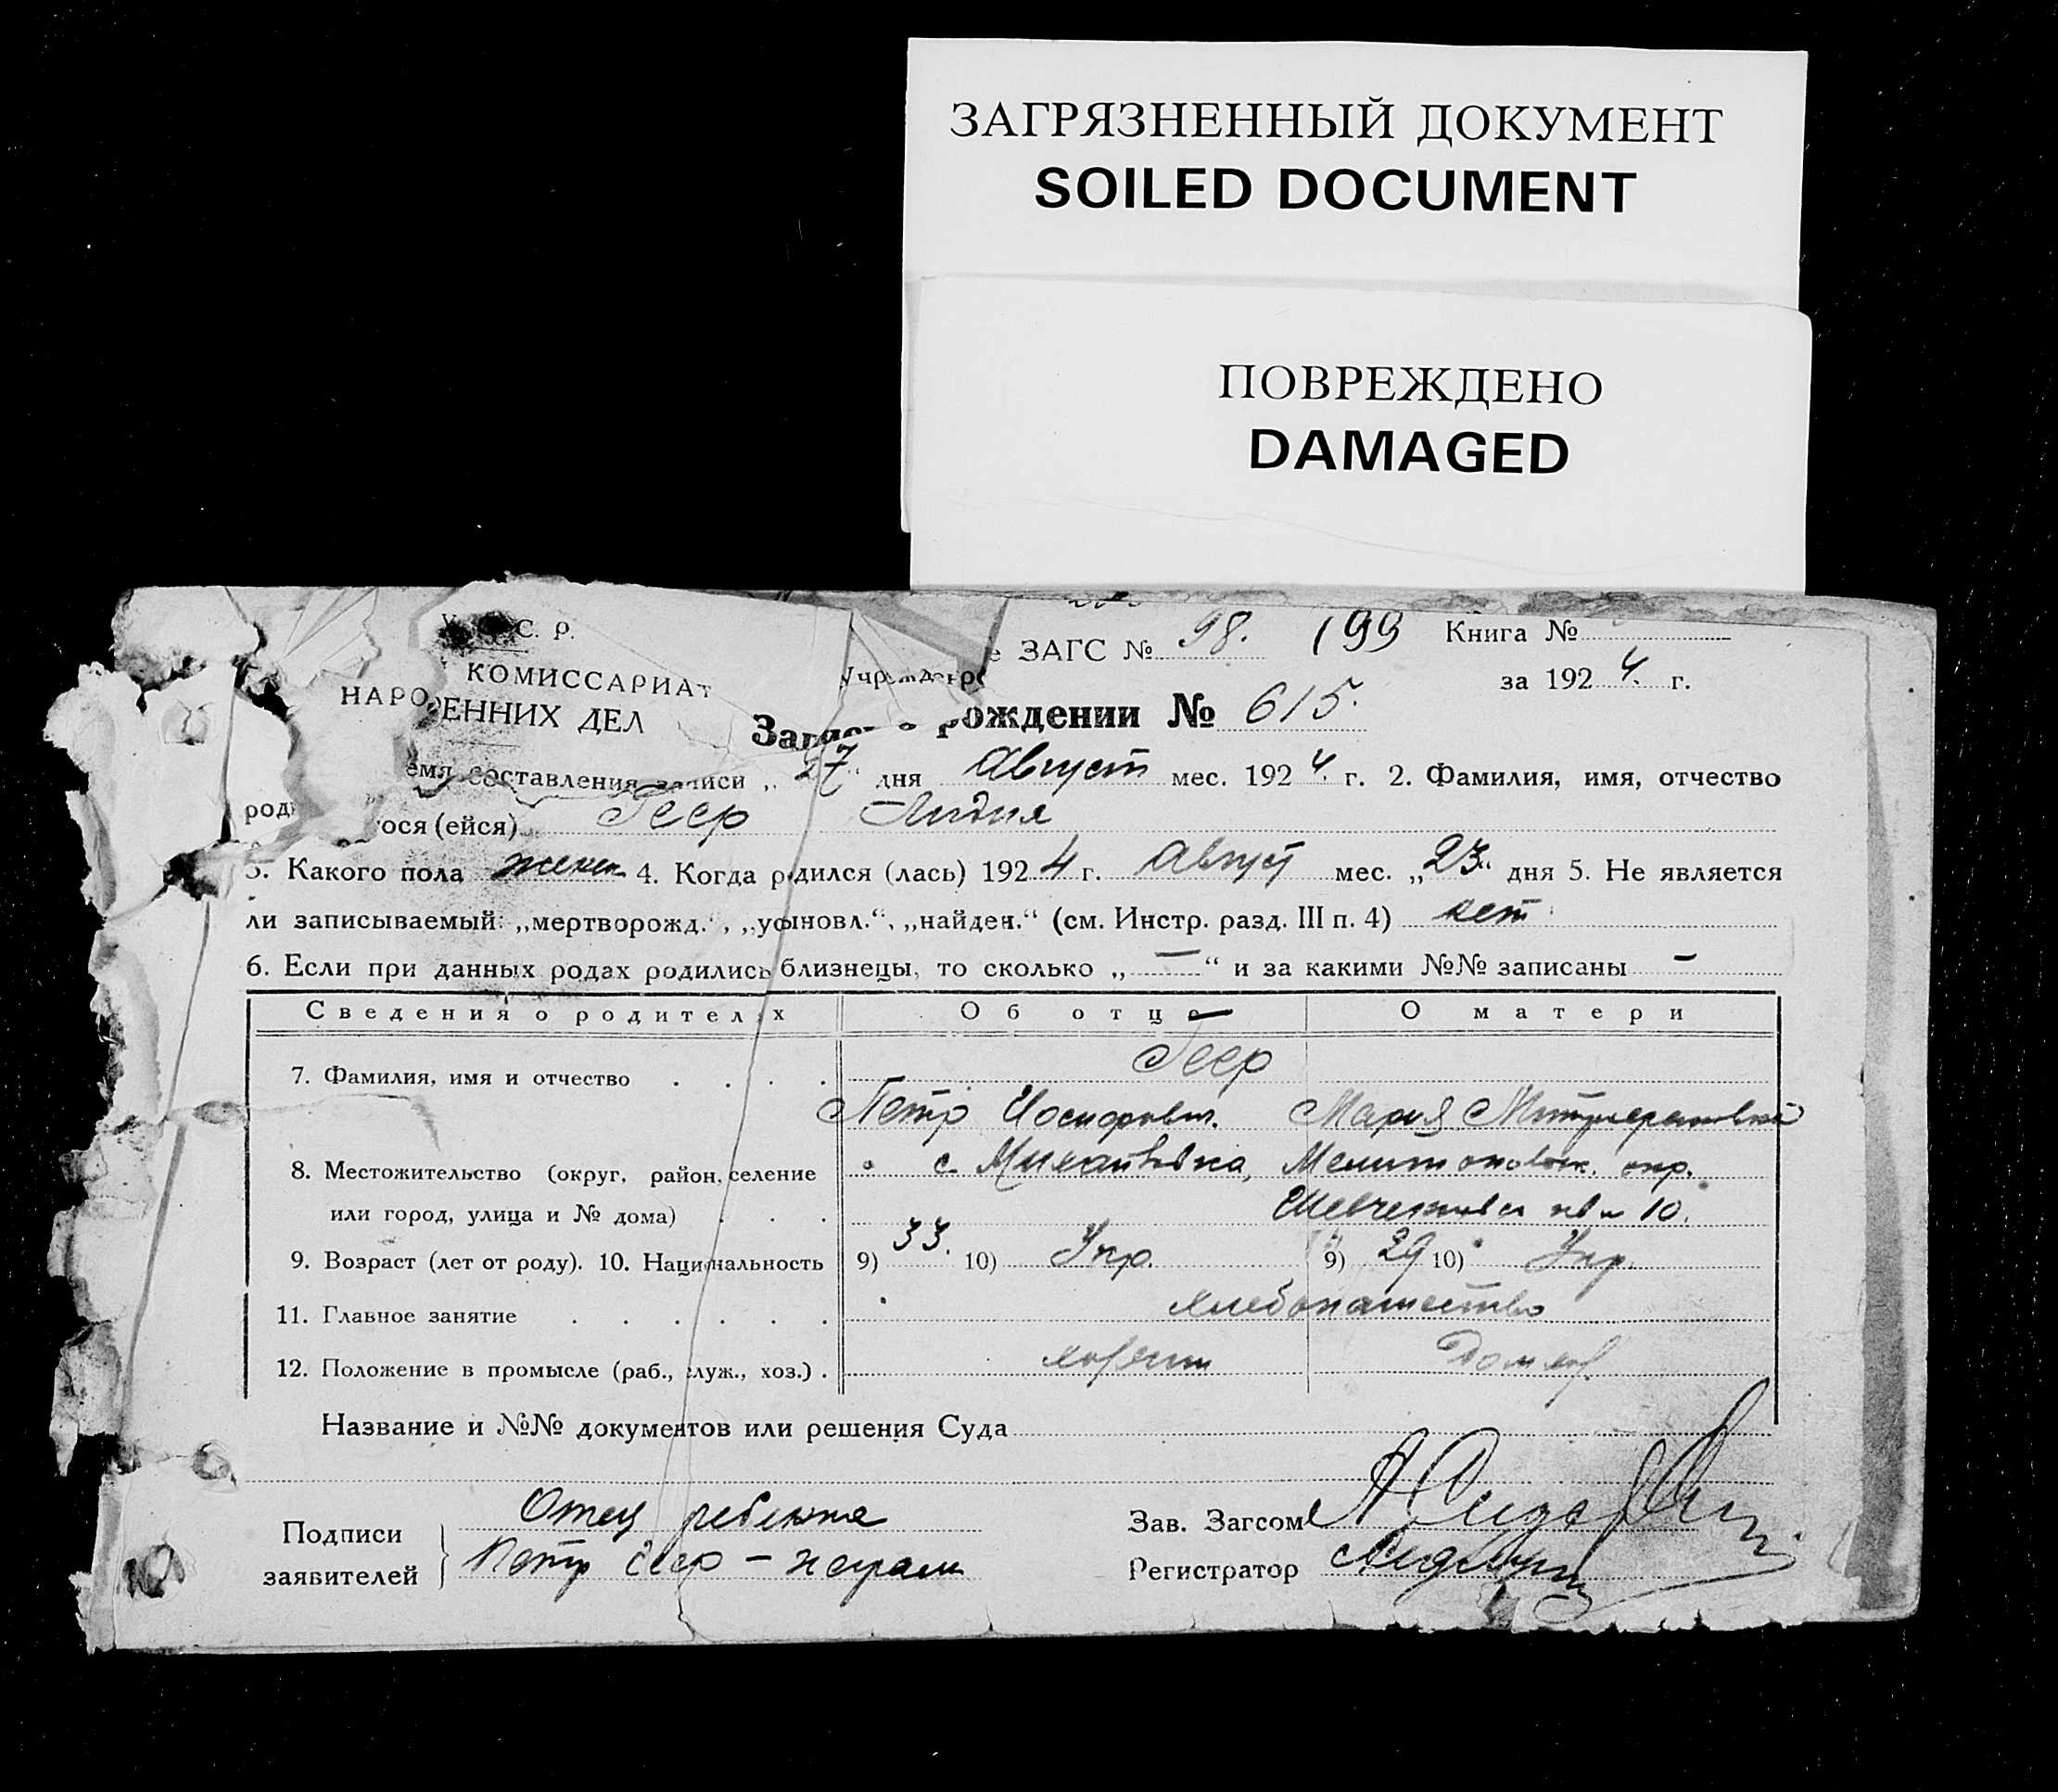 ЗАГРЯЗНЕННЫЙ ДОКУМЕНТ
SOILED DOCUMENT
ПОВРЕЖДЕНО
DAMAGED
С. Р.
КОМИССАРИАТ
ЕННИХ ДЕЛ
е ЗАГС № 98. 199 Книга №
за 1924 г.
ождении № 615.
емя составления записи „27" дня Август мес. 1924 г. 2. Фамилия, имя, отчество
ося (ейся) Геер Лидия
3. Какого пола женск 4. Когда родился (лась) 1924 г. Август мес. „23" дня 5. Не является
ли записываемый: „мертворожд.", „усыновл.", „найден." (см. Инстр. разд. III п. 4) нет
6. Если при данных родах родились близнецы, то сколько „—" и за какими №№ записаны —
Сведения о родителях Об отце О матери
7. Фамилия, имя и отчество . . . . Геер
Петр Иосифович. Мария
8. Местожительство (округ, район, селение с. Михайловка, окр.
или город, улица и № дома) . . . 10.
9. Возраст (лет от роду). 10. Национальность 9) 33. 10) Укр. 9) 29 10) Укр.
11. Главное занятие . . . . . . хлебопашество
12. Положение в промысле (раб., служ., хоз.) . хозяин Дом хоз.
Название и №№ документов или решения Суда
Подписи заявителей } Отец ребенка
Петр Геер — неграм
Зав. Загсом
Регистратор